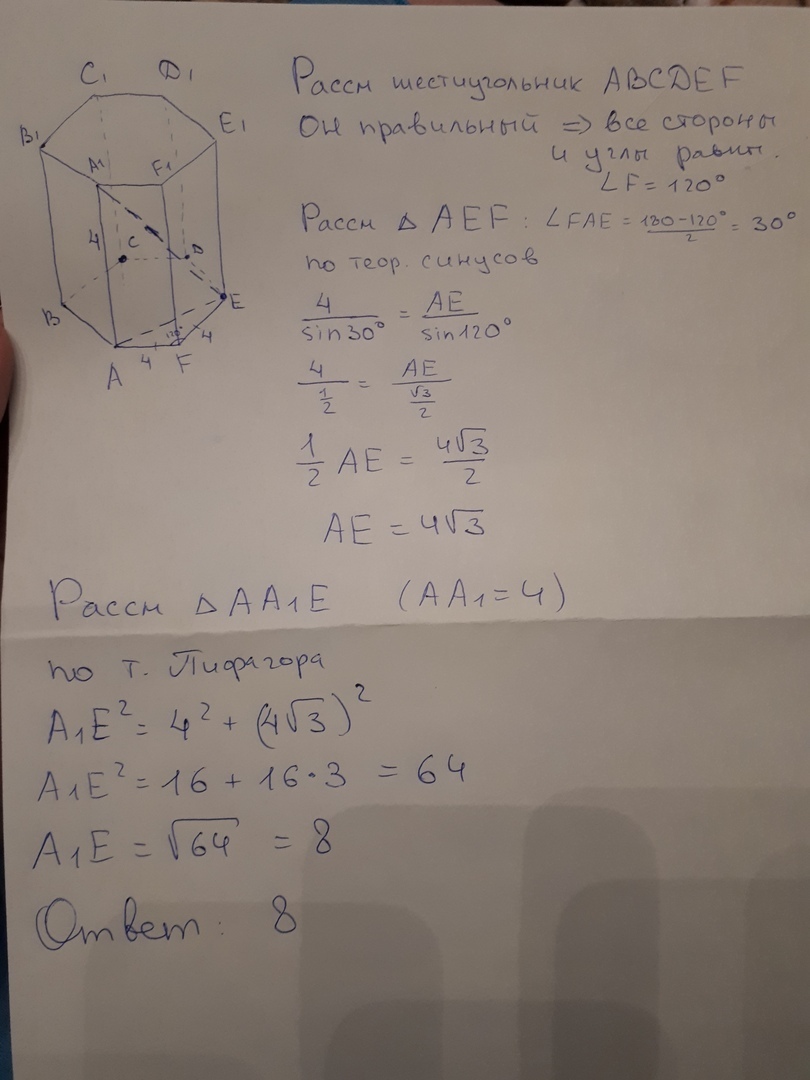 C₁ D₁
B₁ E₁
A₁ F₁
4 C D
B E
120° 4
A 4 F
Рассм шестиугольник ABCDEF
Он правильный => все стороны
и углы равны.
∠F = 120°
Рассм △ AEF : ∠FAE = (180-120°)/2 = 30°
по теор. синусов
4/sin30° = AE/sin120°
4/(1/2) = AE/(√3/2)
1/2 AE = 4√3/2
AE = 4√3
Рассм △ AA₁E (AA₁ = 4)
по т. Пифагора
A₁E² = 4² + (4√3)²
A₁E² = 16 + 16·3 = 64
A₁E = √64 = 8
Ответ: 8